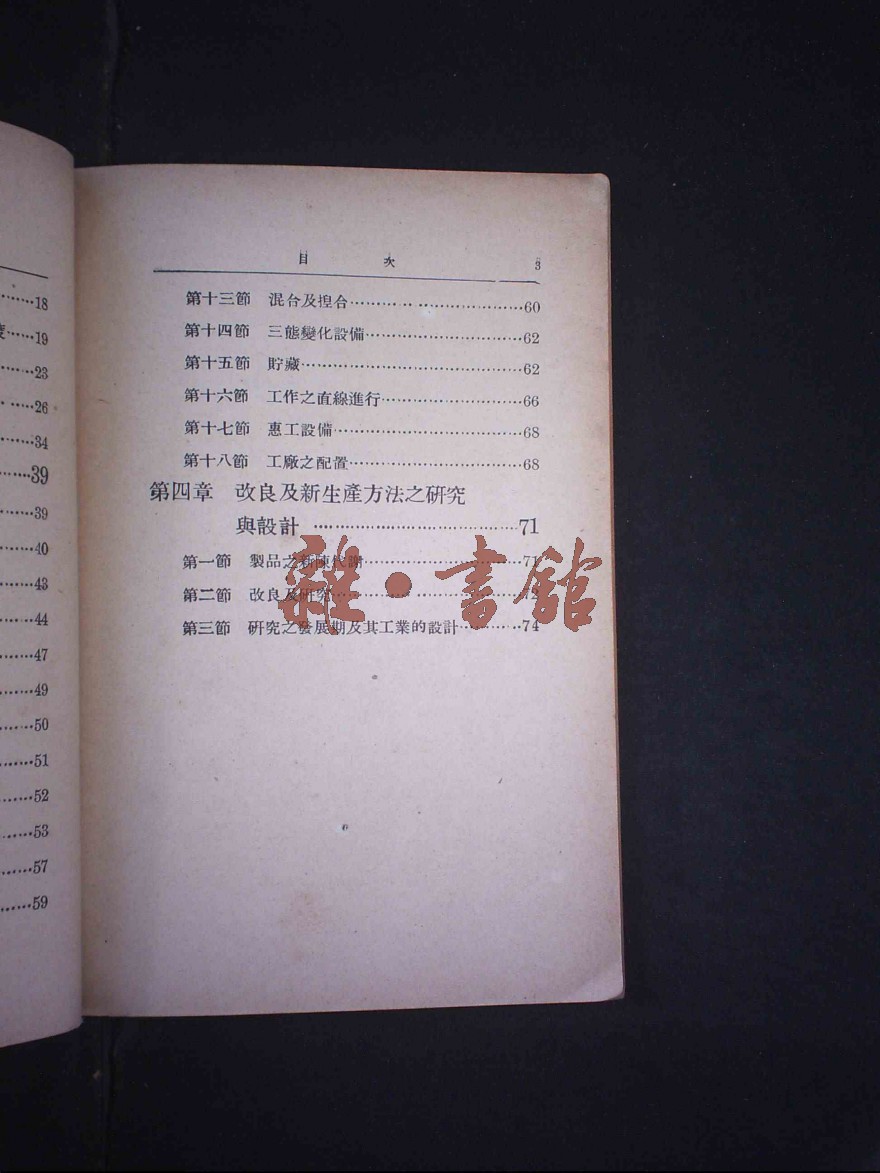 18
19
23
26
34
39
39
40
43
44
47
49
50
51
52
53
57
59
目次 3
第十三節 混合及揑合 60
第十四節 三態變化設備 62
第十五節 貯藏 62
第十六節 工作之直線進行 66
第十七節 惠工設備 68
第十八節 工廠之配置 68
第四章 改良及新生產方法之研究
與設計 71
第一節 製品之新陳代謝 71
第二節 改良及研究 72
第三節 研究之發展期及其工業的設計 74
雜·書館